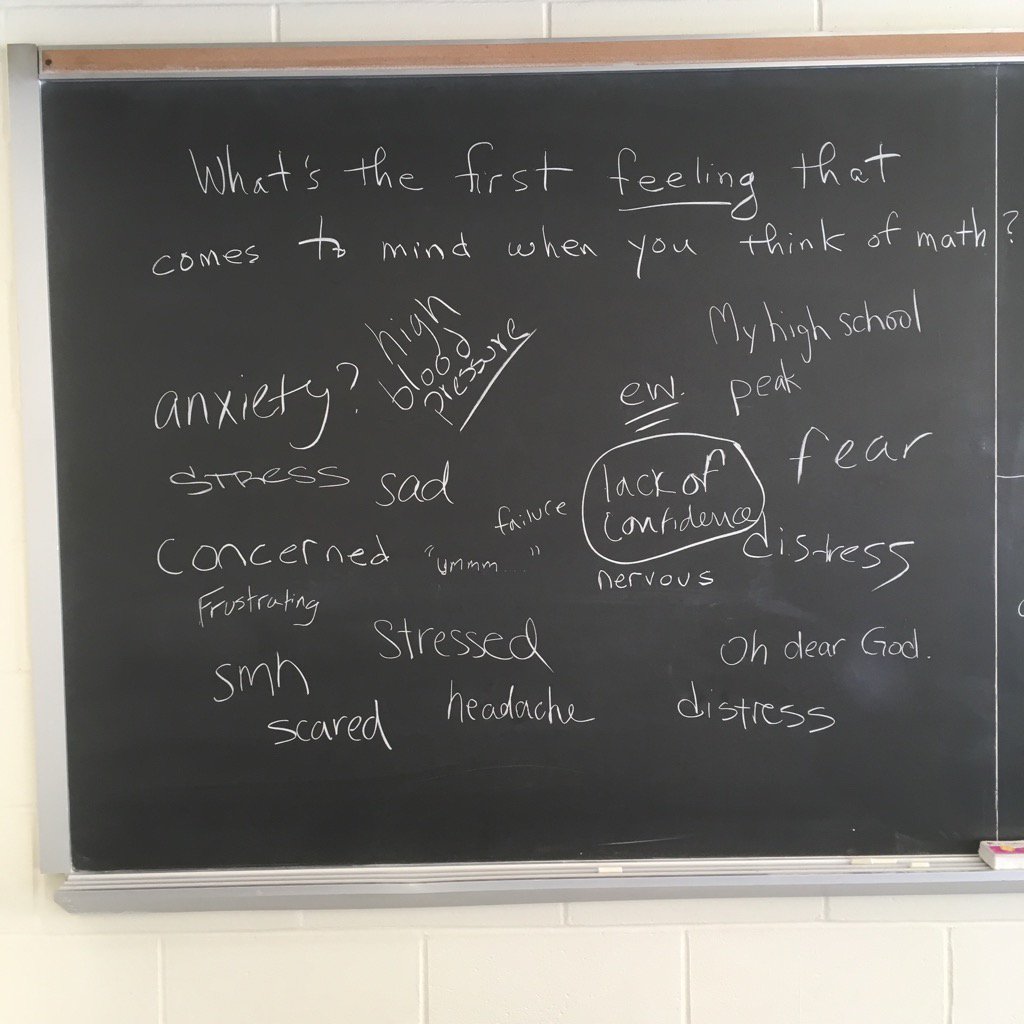 What's the first feeling that
comes to mind when you think of math?
high
blood
pressure
My high school
peak
anxiety?
ew.
fear
STRESS
sad
lack of
confidence
failure
concerned
"ummm...."
distress
nervous
Frustrating
Stressed
Oh dear God.
smh
scared
headache
distress